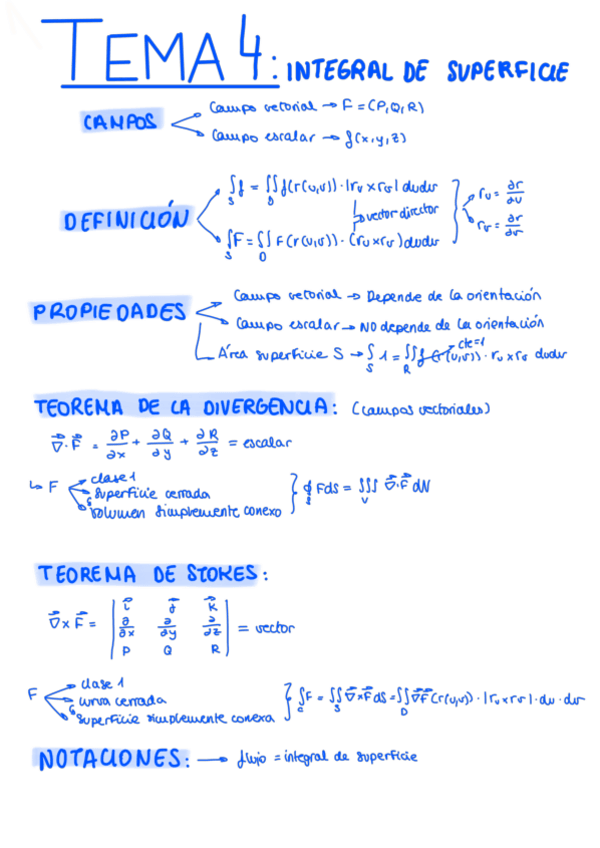 TEMA 4: INTEGRAL DE SUPERFICIE
CAMPOS
Campo vectorial → F = (P,Q,R)
Campo escalar → f(x,y,z)
DEFINICIÓN
∫_S f = ∬_D f(r(u,v)) · |r_u x r_v| dudv
↳ vector director
∫_S F = ∬_D F(r(u,v)) · (r_u x r_v) dudv
r_u = ∂r/∂u
r_v = ∂r/∂v
PROPIEDADES
Campo vectorial → Depende de la orientación
Campo escalar → NO depende de la orientación
Área superficie S → ∫_S 1 = ∬_R f(r(u,v)) · r_u x r_v dudv
cte=1
TEOREMA DE LA DIVERGENCIA: (campos vectoriales)
∇·F = ∂P/∂x + ∂Q/∂y + ∂R/∂z = escalar
↳ F
clase 1
superficie cerrada
volumen simplemente conexo
∮_S Fds = ∭_V ∇·F dV
TEOREMA DE STOKES:
∇x F = | i j k | = vector
∂/∂x ∂/∂y ∂/∂z
P Q R
F
clase 1
curva cerrada
superficie simplemente conexa
∫_C F = ∬_S ∇xF ds = ∬_D ∇F (r(u,v)) · |r_u x r_v| · du · dv
NOTACIONES: → flujo = integral de superficie